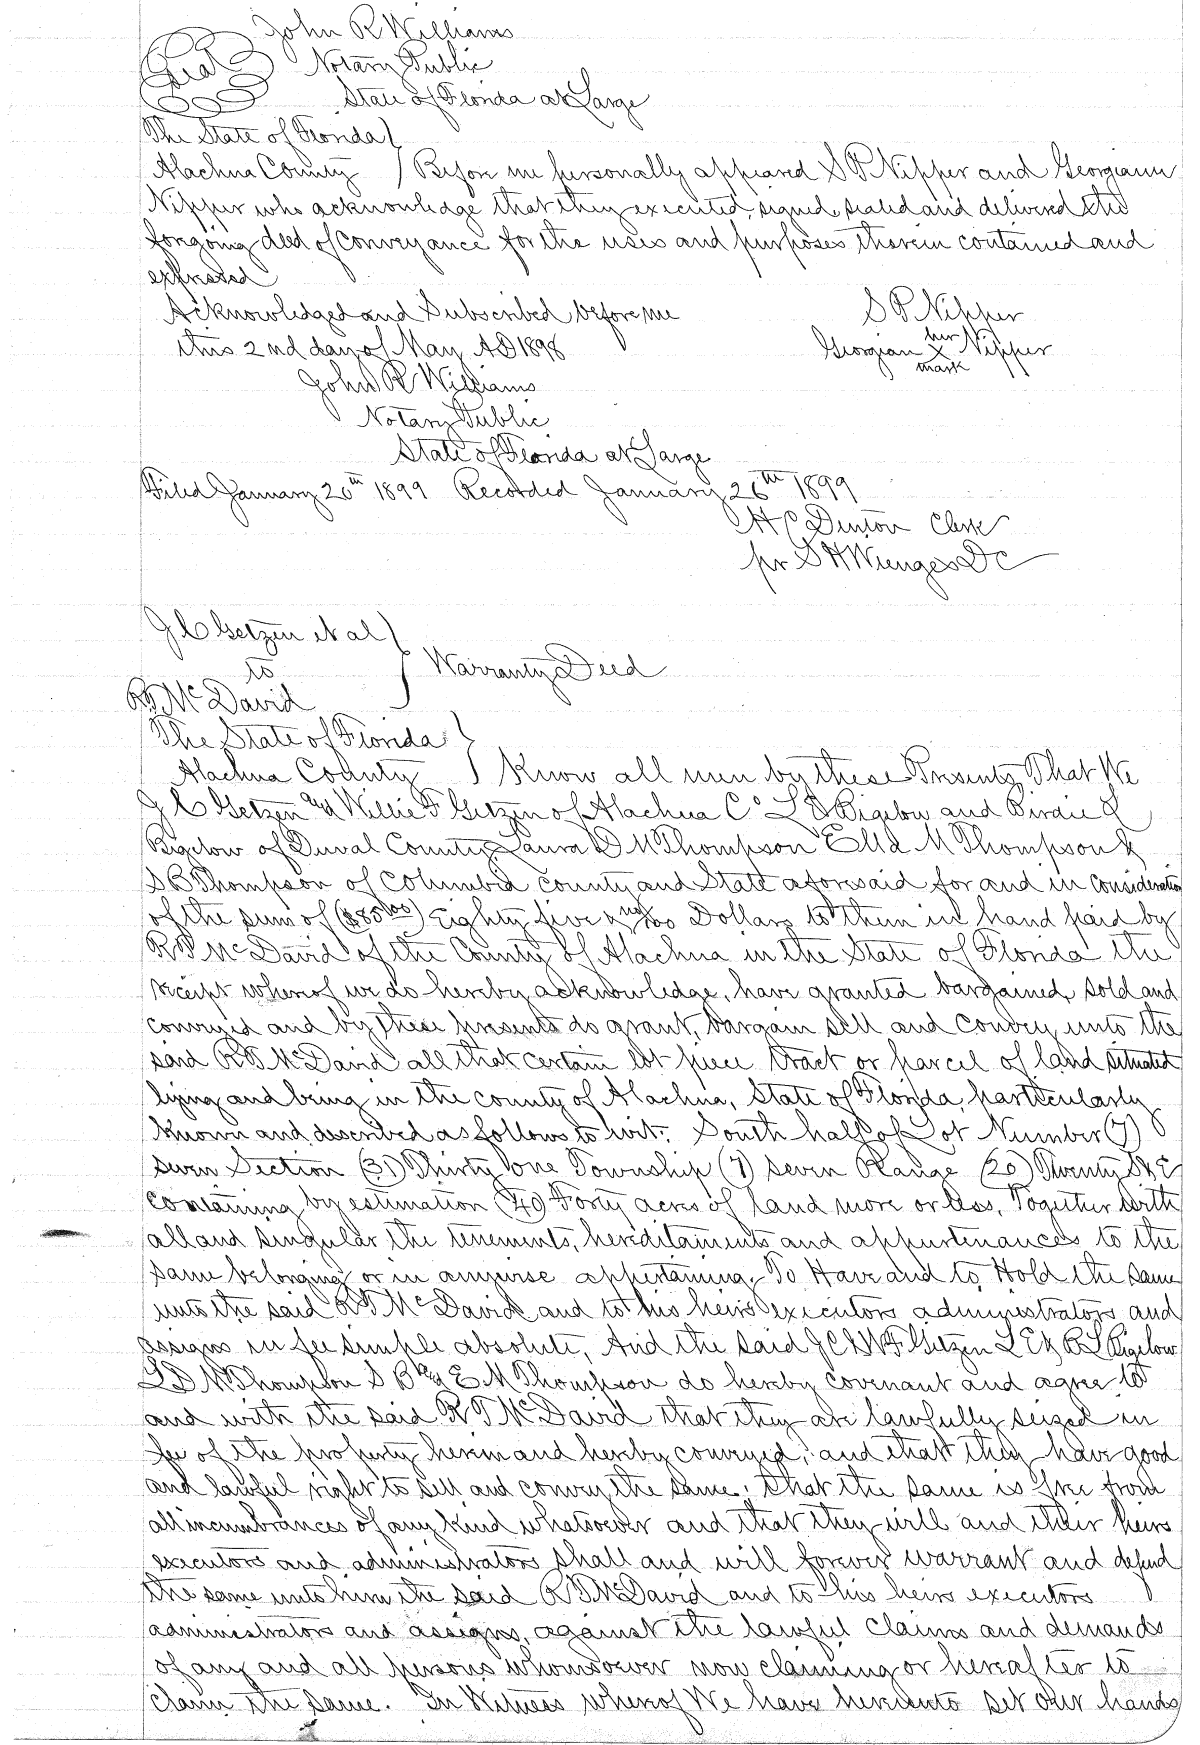 John R Williams
Seal
Notary Public
State of Florida at Large
The State of Florida
Alachua County Before me personally appeared S P Nipper and Georgiann
Nipper who acknowledge that they executed, signed, sealed and delivered the
forgoing deed of Conveyance for the uses and purposes therein contained and
expressed
Acknowledged and Subscribed before me
this 2nd day of May AD 1898
S P Nipper
her
Georgian X Nipper
mark
John R Williams
Notary Public
State of Florida at Large
Filed January 26th 1899 Recorded January 26th 1899
H C Denton Clerk
pr S H Wienges DC
J C Getzen et al
to
Warranty Deed
R T McDavid
The State of Florida
Alachua County Know all men by these Presents That We
J C Getzen and Willie F Getzen of Alachua Co L E Bigelow and Birdie L
Bigelow of Duval County, Laura D M Thompson Ella M Thompson &
S B Thompson of Columbia county and State aforesaid for and in consideration
of the sum of ($85/00) Eighty five & no/100 Dollars to them in hand paid by
R T McDavid of the County of Alachua in the State of Florida the
receipt whereof we do hereby acknowledge, have granted bargained, sold and
conveyed and by these presents do grant, bargain sell and convey unto the
said R T McDavid all that certain lot piece tract or parcel of land situated
lying and being in the county of Alachua, State of Florida, particularly
known and described as follows to wit: South half of Lot Number (7)
seven Section (31) Thirty one Township (7) seven Range (20) Twenty S & E
containing by estimation (40) Forty acres of land more or less, Together with
all and singular the tenements, hereditaments and appurtenances to the
same belonging or in anywise appertaining, To Have and to Hold the same
unto the said R T McDavid and to his heirs executors administrators and
assigns in fee simple absolute, And the said J C & W F Getzen L E & B L Bigelow
L D M Thompson S B and E M Thompson do hereby covenant and agree to
and with the said R T McDavid that they are lawfully seized in
fee of the property herein and hereby conveyed; and that they have good
and lawful right to sell and convey the same; that the same is free from
all incumbrances of any kind whatsoever and that they will and their heirs
executors and administrators shall and will forever warrant and defend
the same unto him the said R T McDavid and to his heirs executors
administrators and assigns, against the lawful claims and demands
of any and all persons whomsoever now claiming or hereafter to
claim the same. In Witness whereof We have hereunto set our hands